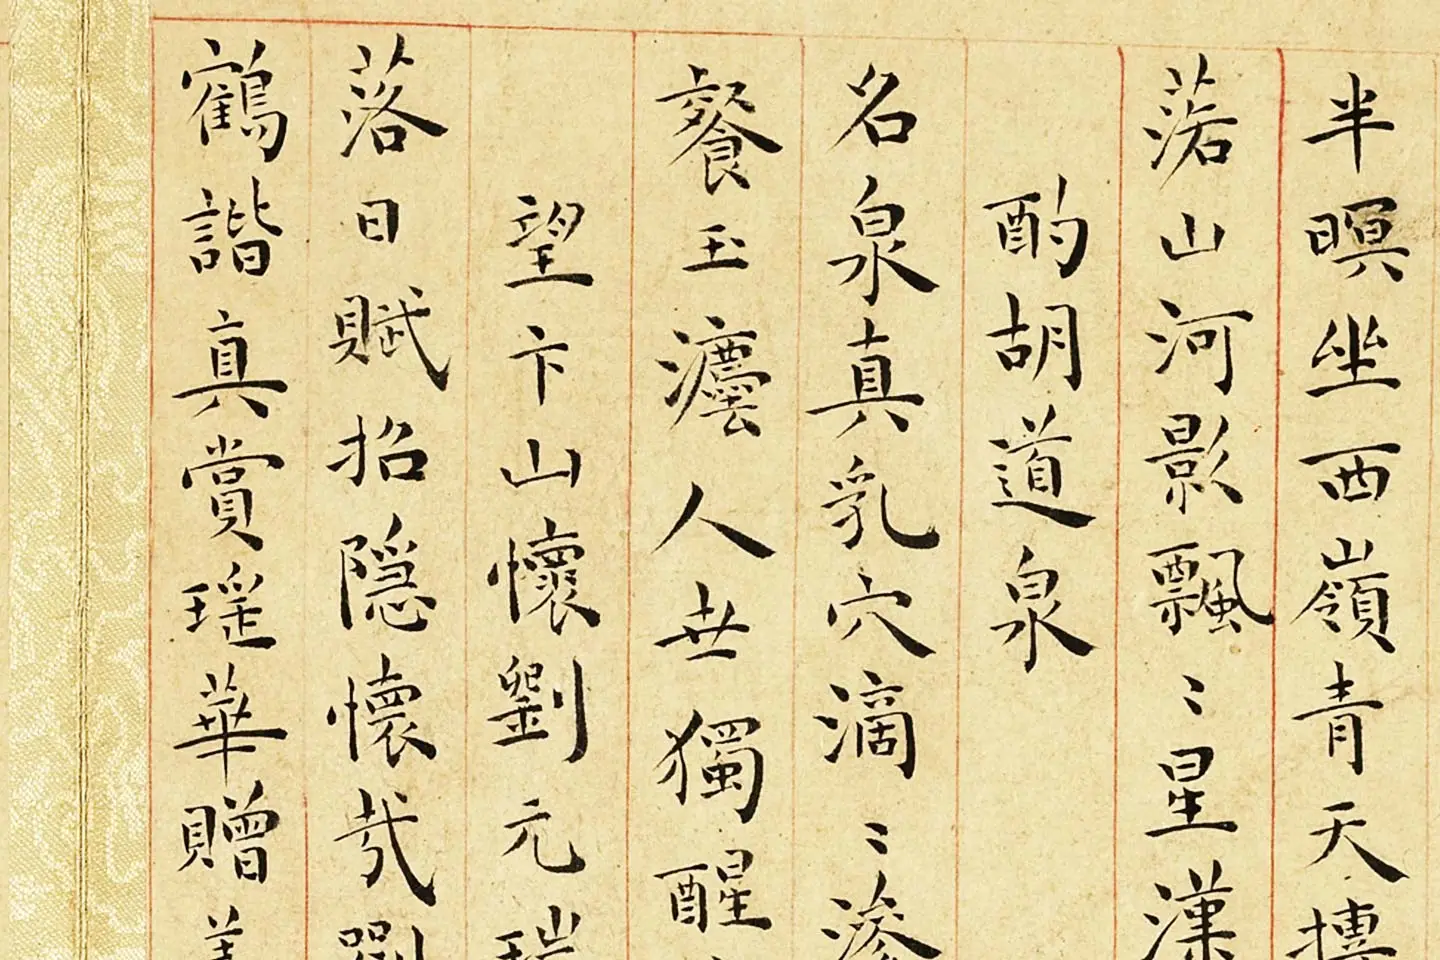 半暝坐西嶺青天摶
落山河影飄〻星漢
酌胡道泉
名泉真乳穴滴〻滲
餐玉瀣人世獨醒
望卞山懷劉元瑞
落日賦招隱懷哉劉
鶴諧真賞瑶華贈美